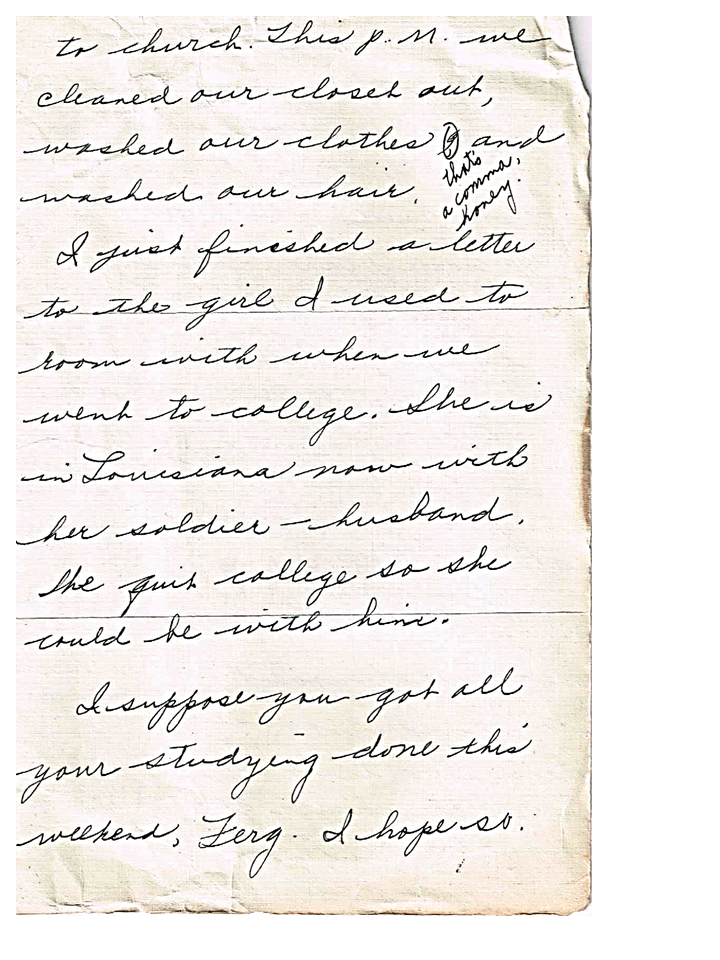 to church. This p.M. we
cleaned our closet out,
washed our clothes, and
that's
a comma,
honey.
washed our hair.
I just finished a letter
to the girl I used to
room with when we
went to college. She is
in Louisiana now with
her soldier - husband.
She quit college so she
could be with him.
I suppose you got all
your studying done this
weekend, Ferg. I hope so.